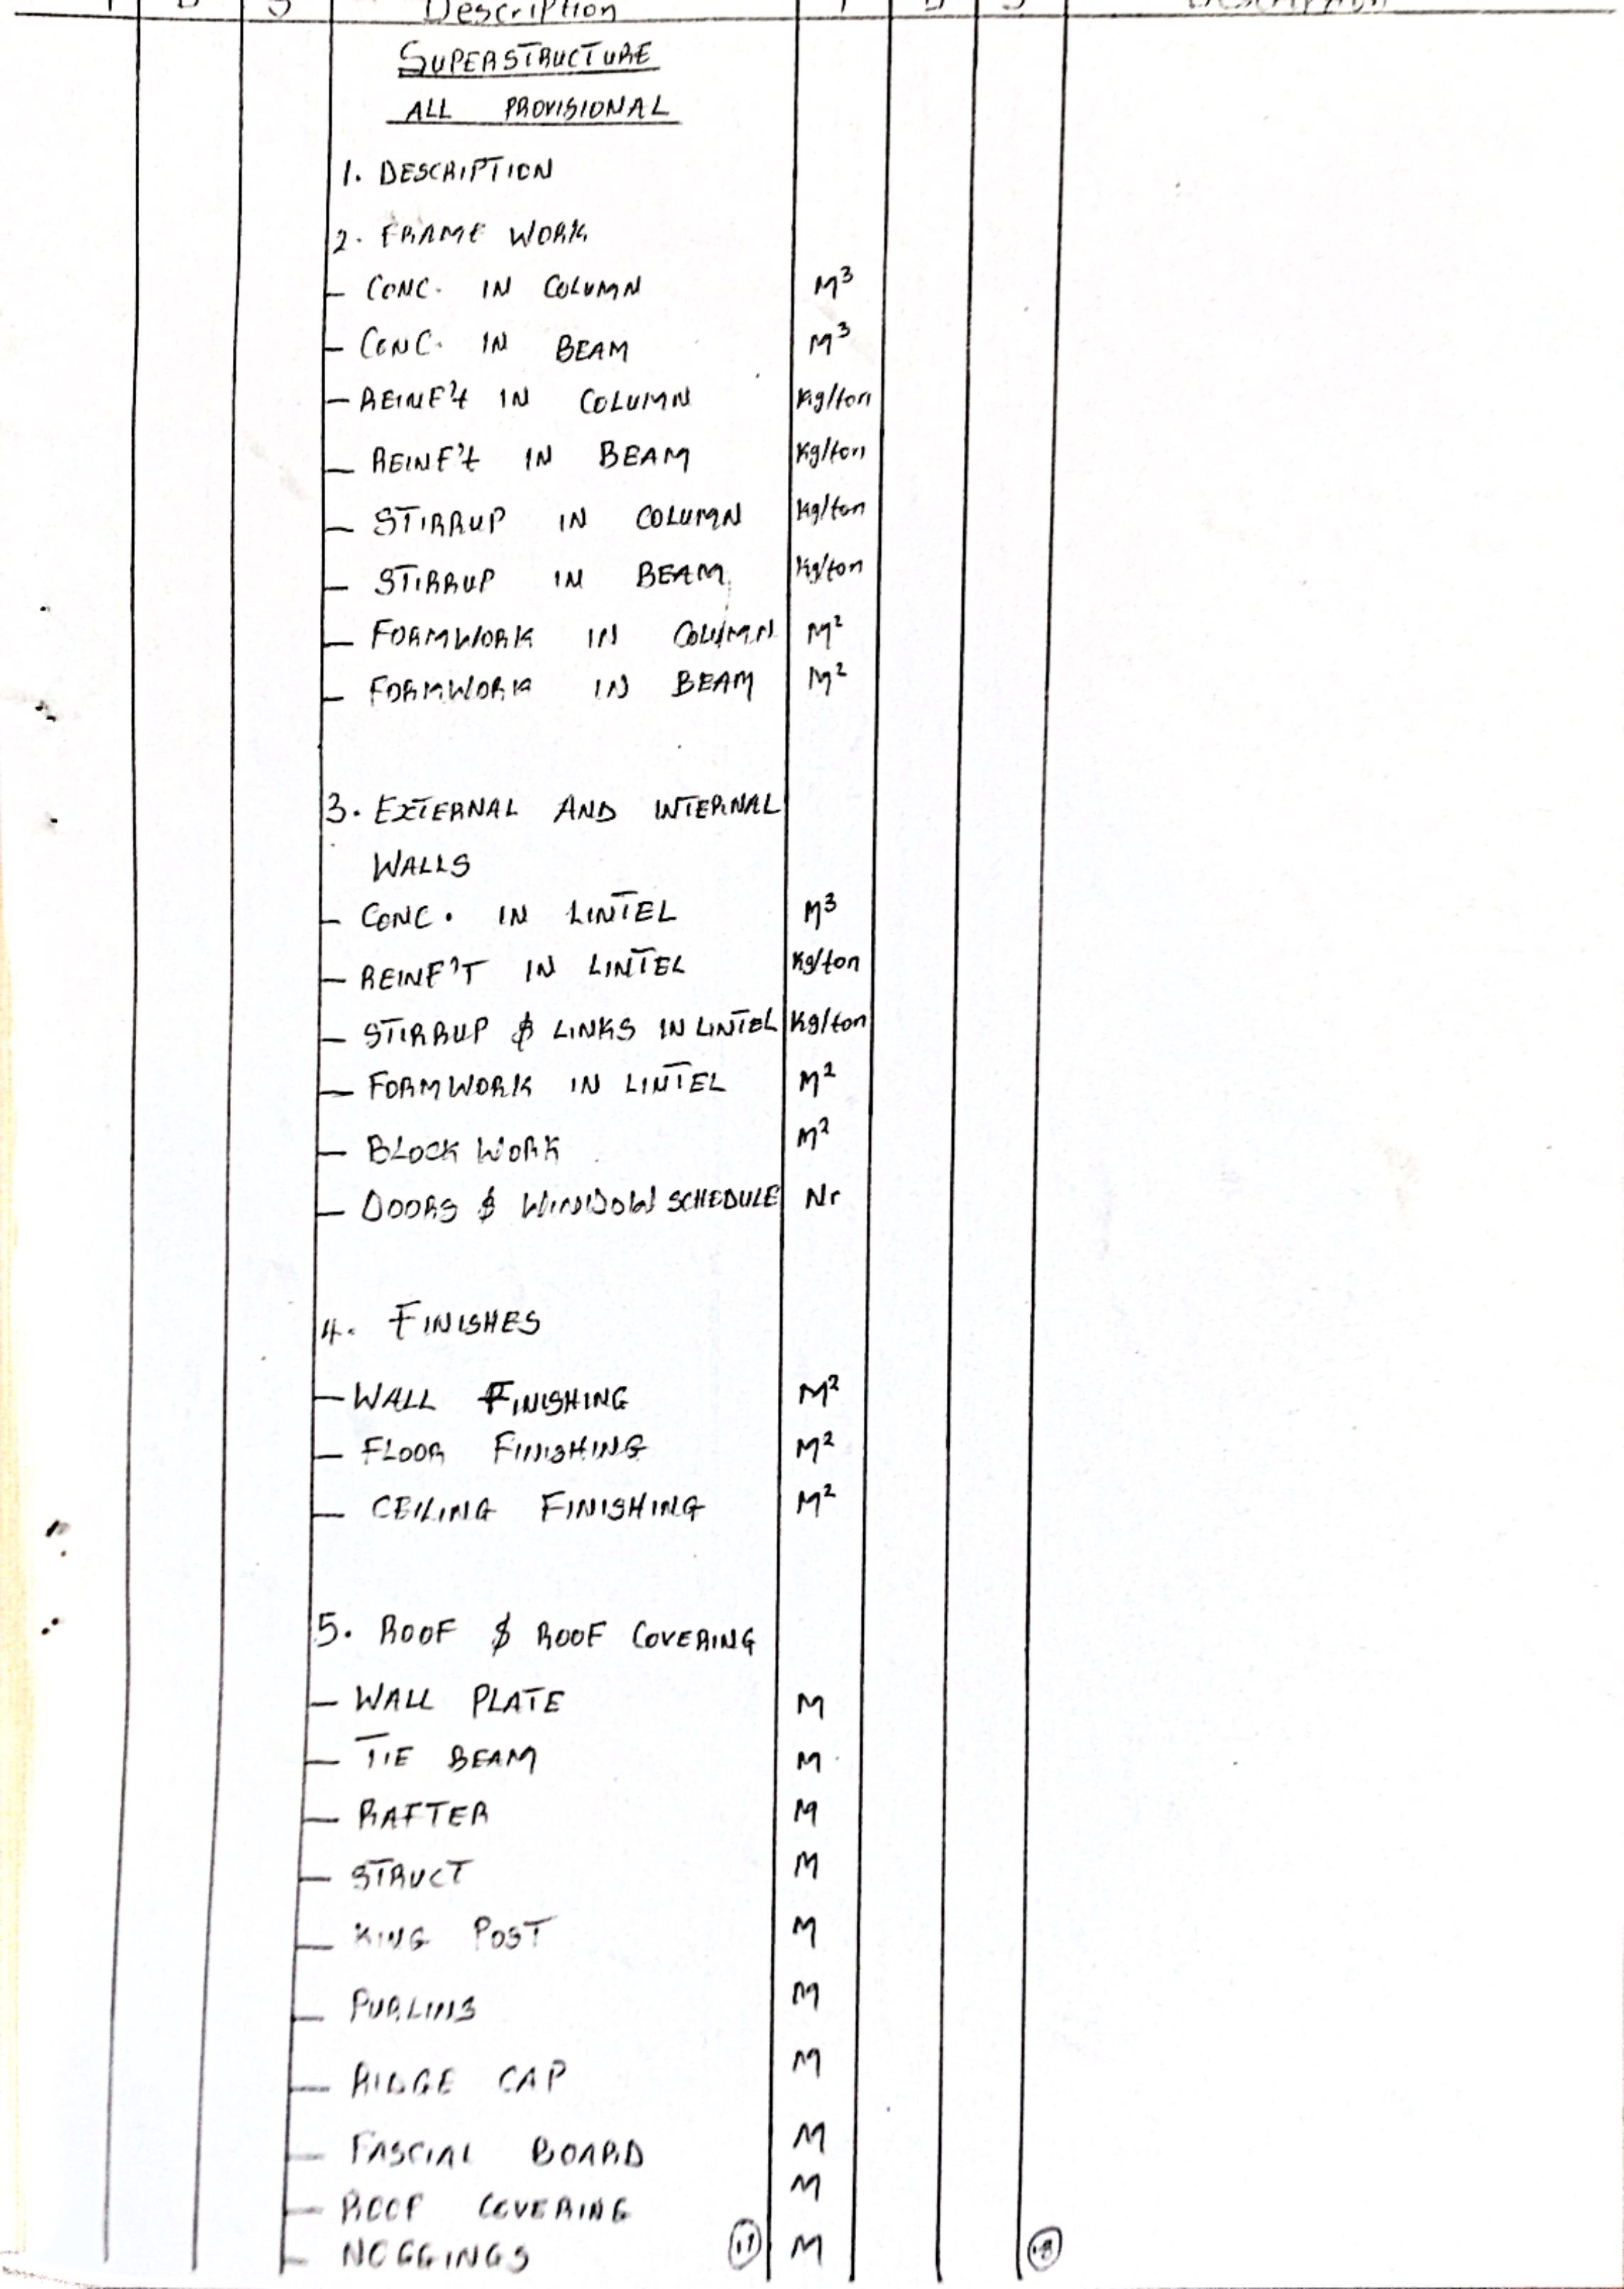 T D S Description T D S Description
SUPERSTRUCTURE
ALL PROVISIONAL
1. DESCRIPTION
2. FRAME WORK
- CONC. IN COLUMN M³
- CONC. IN BEAM M³
- REINF't IN COLUMN Kg/ton
- REINF't IN BEAM Kg/ton
- STIRRUP IN COLUMN Kg/ton
- STIRRUP IN BEAM Kg/ton
- FORMWORK IN COLUMN M²
- FORMWORK IN BEAM M²
3. EXTERNAL AND INTERNAL
WALLS
- CONC. IN LINTEL M³
- REINF'T IN LINTEL Kg/ton
- STIRRUP & LINKS IN LINTEL Kg/ton
- FORMWORK IN LINTEL M²
- BLOCK WORK M²
- DOORS & WINDOW SCHEDULE Nr
4. FINISHES
- WALL FINISHING M²
- FLOOR FINISHING M²
- CEILING FINISHING M²
5. ROOF & ROOF COVERING
- WALL PLATE M
- TIE BEAM M
- RAFTER M
- STRUCT M
- KING POST M
- PURLINS M
- RIDGE CAP M
- FASCIAL BOARD M
- ROOF COVERING M
- NOGGINGS M